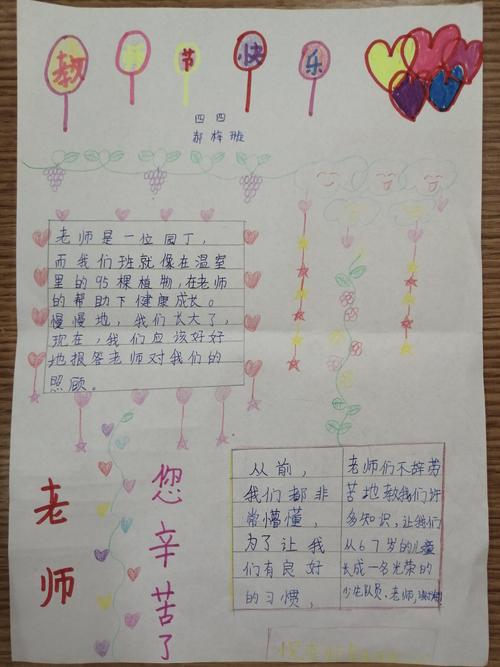 教师节快乐
四四
郝梓璇
老师是一位园丁，
而我们班就像在温室
里的95棵植物，在老师
的帮助下健康成长。
慢慢地，我们长大了，
现在，我们应该好好
地报答老师对我们的
照顾。
老师
您辛苦了
从前，
我们都非
常懵懂，
为了让我
们有良好
的习惯，
老师们不辞劳
苦地教我们许
多知识，让我们
从67岁的儿童
长成一名光荣的
少先队员。老师，谢谢